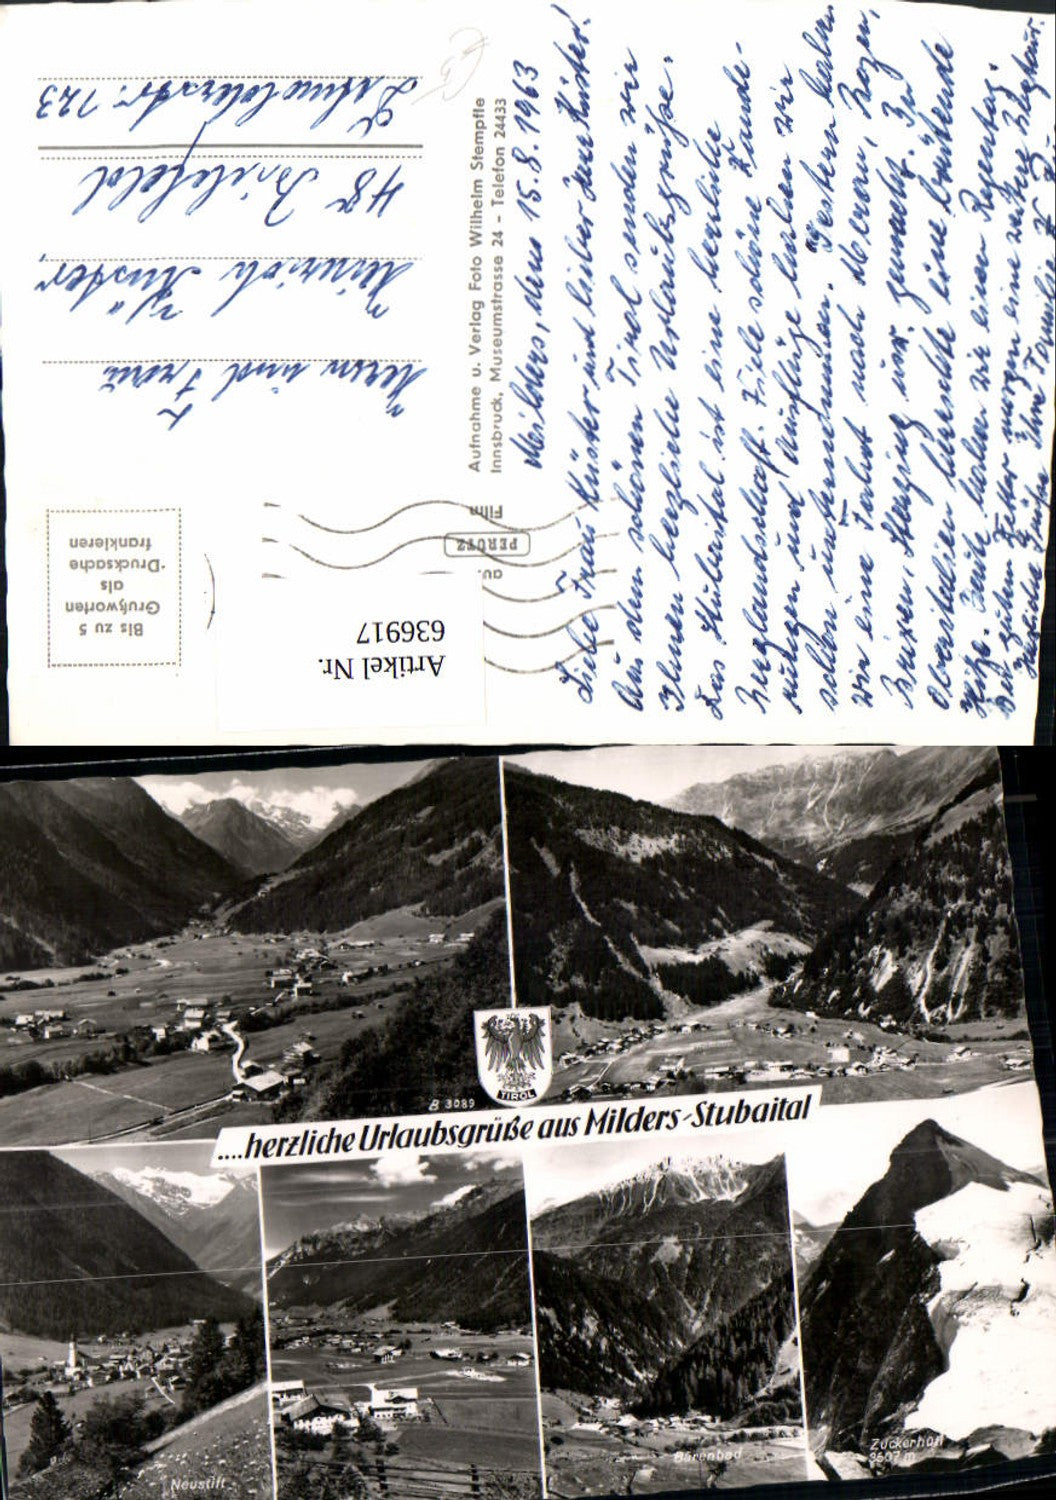 Milders, den 15.8.1963
Liebe Frau Küster und lieber Herr Küster!
Aus dem schönen Tirol senden wir
Ihnen herzliche Urlaubsgrüße.
Das Stubaital ist eine herrliche
Berglandschaft. Viele schöne Wande-
rungen und Ausflüge haben wir
schon unternommen. Gestern haben
wir eine Fahrt nach Meran, Bozen,
Brixen, Sterzing usw. gemacht. In
Oberitalien herrschte eine brütende
Hitze. Heute haben wir einen Regentag.
Bei gutem Wetter morgen eine weitere
Herzliche Grüße Ihre Familie
Aufnahme u. Verlag Foto Wilhelm Stempfle
Innsbruck, Museumstrasse 24 - Telefon 24433
auf
PERUTZ
Film
Artikel Nr.
636917
Bis zu 5
Grußworten
als
"Drucksache
frankieren
Herrn und Frau
Heinrich Küster,
48 Bielefeld
Detmolderstr. 123
TIROL
B 3089
....herzliche Urlaubsgrüße aus Milders-Stubaital
Neustift
Bärenbad
Zuckerhütl
3507 m